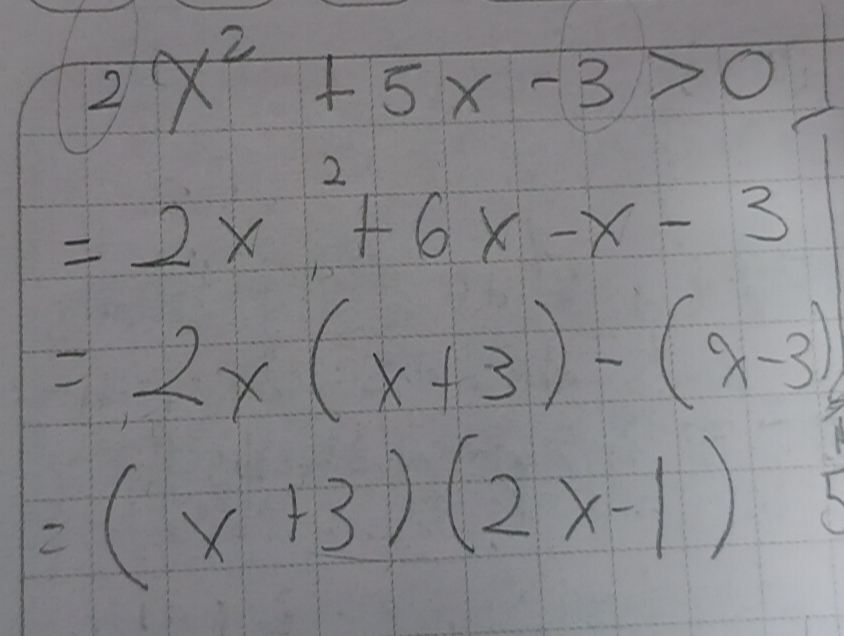 2x² + 5x - 3 > 0
= 2x² + 6x - x - 3
= 2x(x+3) - (x-3)
= (x+3)(2x-1)